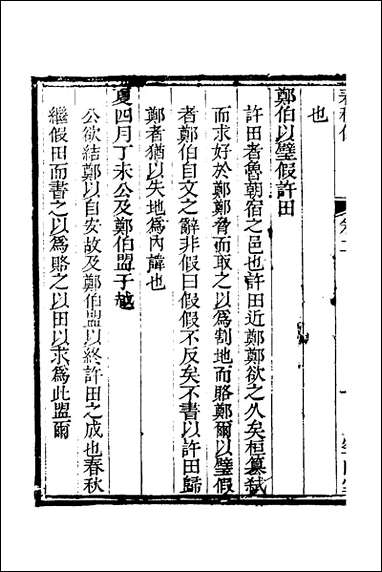 也
鄭伯以璧假許田
許田者魯朝宿之邑也許田近鄭鄭欲之久矣桓簒弑
而求好於鄭鄭脅而取之以爲割地而賂鄭爾以璧假
者鄭伯自文之辭非假曰假假不反矣不書以許田歸
鄭者猶以失地爲內諱也
夏四月丁未公及鄭伯盟于越
公欲結鄭以自安故及鄭伯盟以終許田之成也春秋
繼假田而書之以爲賂之以田以求爲此盟爾